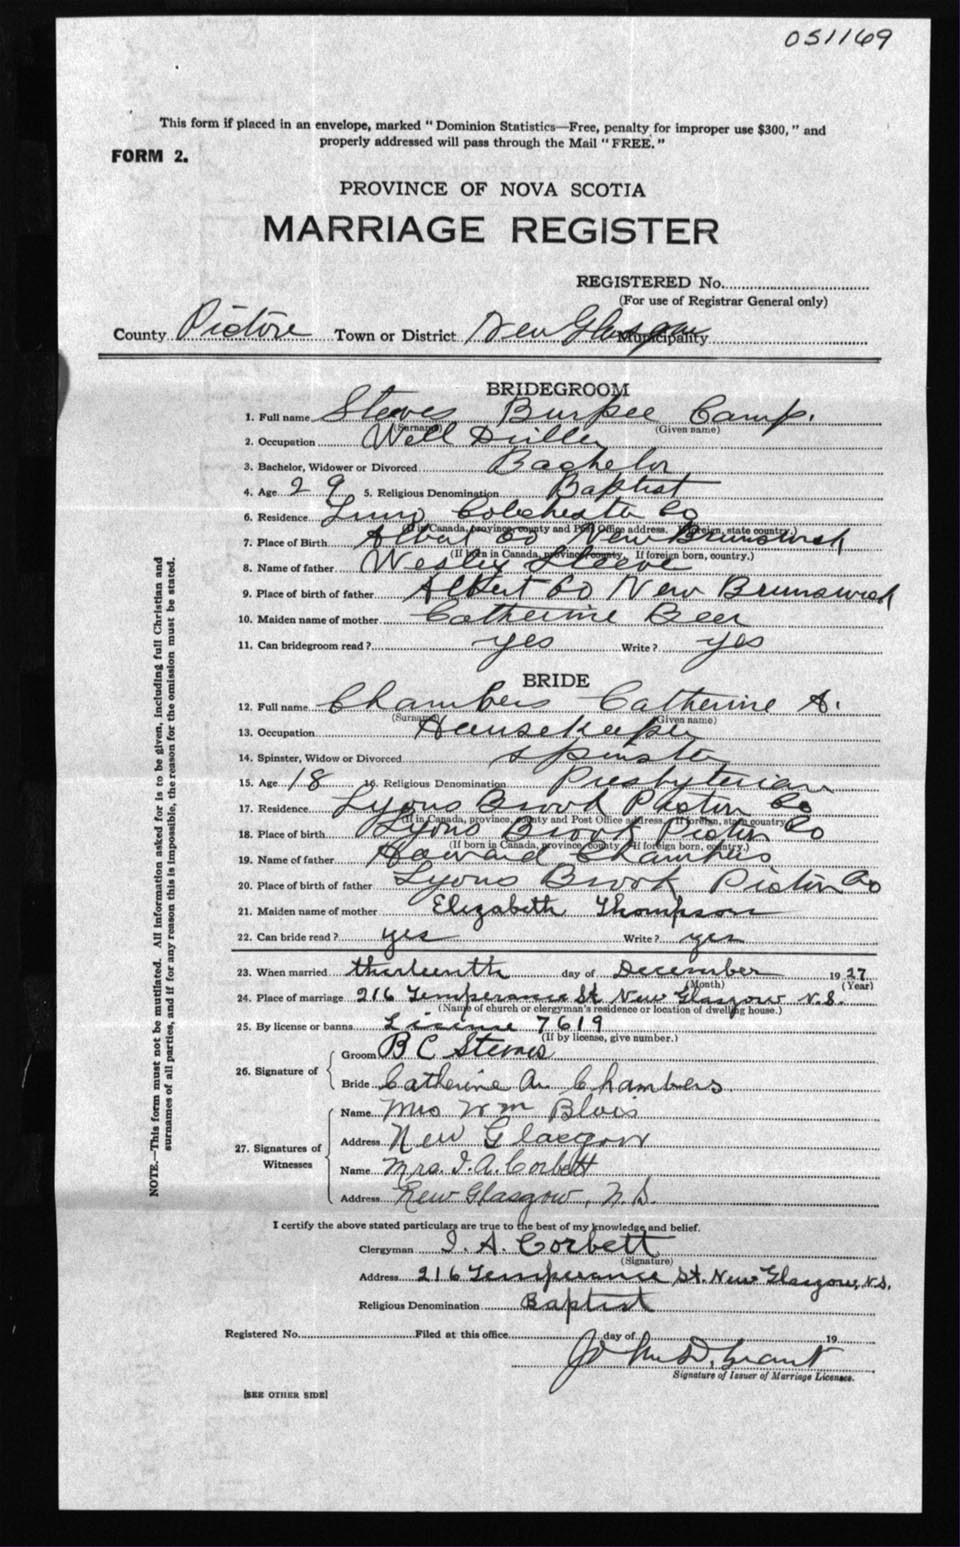 051169
This form if placed in an envelope, marked "Dominion Statistics—Free, penalty for improper use $300," and
properly addressed will pass through the Mail "FREE."
FORM 2.
PROVINCE OF NOVA SCOTIA
MARRIAGE REGISTER
REGISTERED No.
(For use of Registrar General only)
County Pictou Town or District New Glasgow Municipality
BRIDEGROOM
1. Full name Steeves Burpee Camp.
(Surname) (Given name)
2. Occupation Well Driller
3. Bachelor, Widower or Divorced Bachelor
4. Age 29 5. Religious Denomination Baptist
6. Residence Colchester Co
(If in Canada, province, county and Post Office address. If foreign, state country.)
7. Place of Birth Albert Co New Brunswick
(If born in Canada, province, county. If foreign born, country.)
8. Name of father Wesley Steeve
9. Place of birth of father Albert Co New Brunswick
10. Maiden name of mother Catherine Beer
11. Can bridegroom read? yes Write? yes
BRIDE
12. Full name Chambers Catherine A.
(Surname) (Given name)
13. Occupation Housekeeper
14. Spinster, Widow or Divorced Spinster
15. Age 18 16. Religious Denomination Presbyterian
17. Residence Lyons Brook Pictou Co
(If in Canada, province, county and Post Office address. If foreign, state country.)
18. Place of birth Lyons Brook Pictou Co
(If born in Canada, province, county. If foreign born, country.)
19. Name of father Howard Chambers
20. Place of birth of father Lyons Brook Pictou Co
21. Maiden name of mother Elizabeth Thompson
22. Can bride read? yes Write? yes
23. When married thirteenth day of December 1927
(Month) (Year)
24. Place of marriage 216 Temperance St New Glasgow N.S.
(Name of church or clergyman's residence or location of dwelling house.)
25. By license or banns License 7619
(If by license, give number.)
26. Signature of
Groom B C Steeves
Bride Catherine A. Chambers
27. Signatures of Witnesses
Name Mrs Wm Blois
Address New Glasgow
Name Mrs. I. A. Corbett
Address New Glasgow, N.S.
I certify the above stated particulars are true to the best of my knowledge and belief.
Clergyman I. A. Corbett
(Signature)
Address 216 Temperance St. New Glasgow, N.S.
Religious Denomination Baptist
Registered No. Filed at this office day of 19
John D. Grant
Signature of Issuer of Marriage Licenses.
[SEE OTHER SIDE]
NOTE.—This form must not be mutilated. All information asked for is to be given, including full Christian and
surnames of all parties, and if for any reason this is impossible, the reason for the omission must be stated.